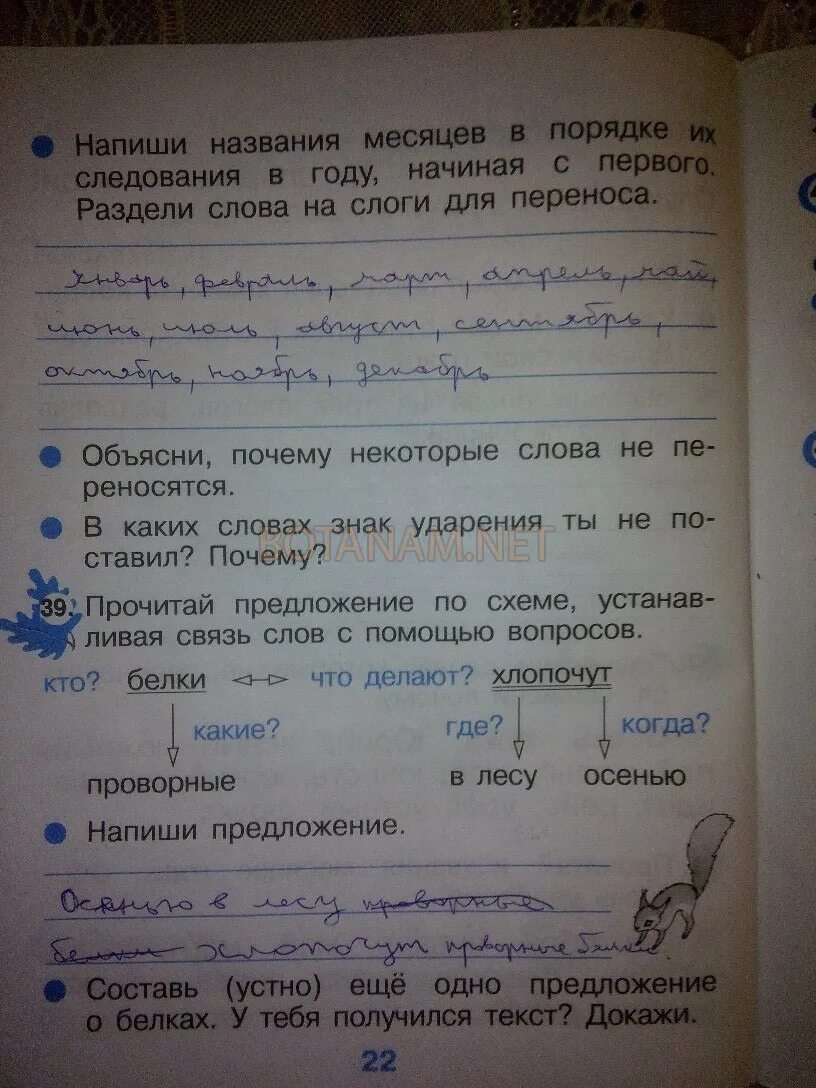 Напиши названия месяцев в порядке их
следования в году, начиная с первого.
Раздели слова на слоги для переноса.
январь, февраль, март, апрель, май,
июнь, июль, август, сентябрь,
октябрь, ноябрь, декабрь
Объясни, почему некоторые слова не пе-
реносятся.
В каких словах знак ударения ты не по-
ставил? Почему?
BOTANAM.NET
39. Прочитай предложение по схеме, устанав-
ливая связь слов с помощью вопросов.
кто? белки что делают? хлопочут
какие? где? когда?
проворные в лесу осенью
Напиши предложение.
Осенью в лесу проворные
белки хлопочут проворные белки.
Составь (устно) ещё одно предложение
о белках. У тебя получился текст? Докажи.
22